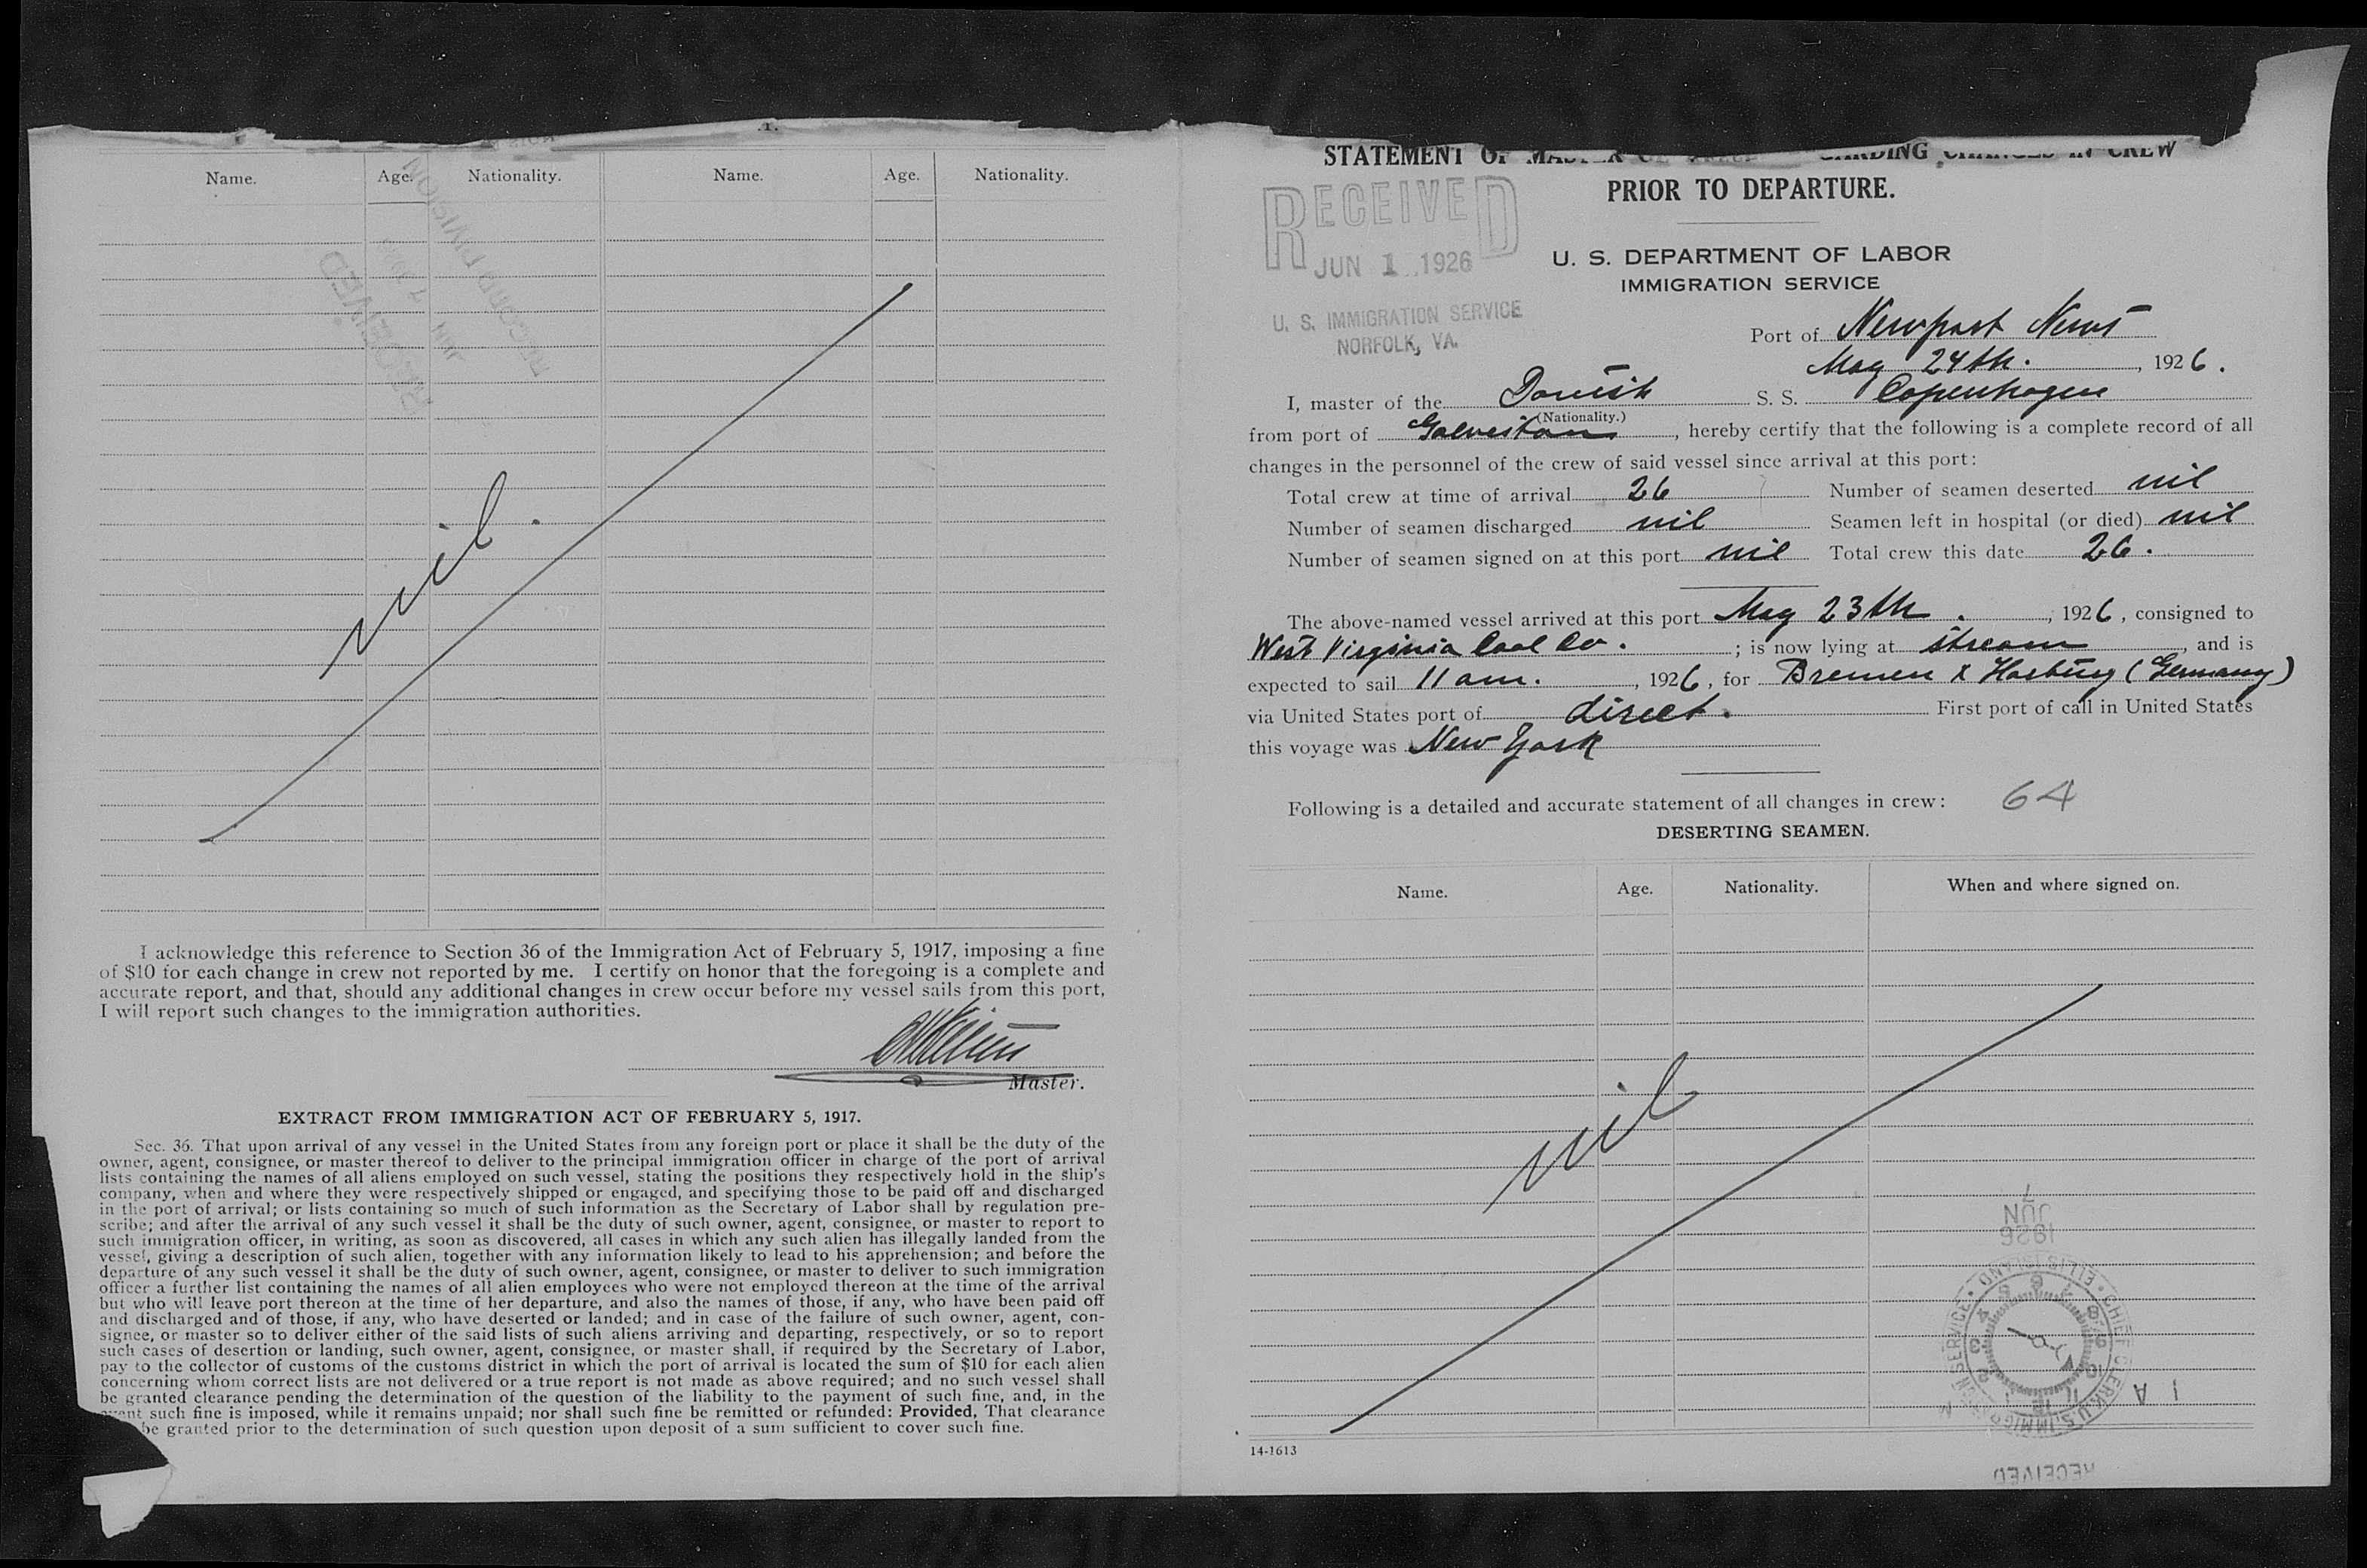 Name. Age. Nationality. Name. Age. Nationality.
RECORD DIVISION
JUN 7
RECEIVED
nil.
I acknowledge this reference to Section 36 of the Immigration Act of February 5, 1917, imposing a fine
of $10 for each change in crew not reported by me. I certify on honor that the foregoing is a complete and
accurate report, and that, should any additional changes in crew occur before my vessel sails from this port,
I will report such changes to the immigration authorities.
Master.
EXTRACT FROM IMMIGRATION ACT OF FEBRUARY 5, 1917.
Sec. 36. That upon arrival of any vessel in the United States from any foreign port or place it shall be the duty of the
owner, agent, consignee, or master thereof to deliver to the principal immigration officer in charge of the port of arrival
lists containing the names of all aliens employed on such vessel, stating the positions they respectively hold in the ship's
company, when and where they were respectively shipped or engaged, and specifying those to be paid off and discharged
in the port of arrival; or lists containing so much of such information as the Secretary of Labor shall by regulation pre-
scribe; and after the arrival of any such vessel it shall be the duty of such owner, agent, consignee, or master to report to
such immigration officer, in writing, as soon as discovered, all cases in which any such alien has illegally landed from the
vessel, giving a description of such alien, together with any information likely to lead to his apprehension; and before the
departure of any such vessel it shall be the duty of such owner, agent, consignee, or master to deliver to such immigration
officer a further list containing the names of all alien employees who were not employed thereon at the time of the arrival
but who will leave port thereon at the time of her departure, and also the names of those, if any, who have been paid off
and discharged and of those, if any, who have deserted or landed; and in case of the failure of such owner, agent, con-
signee, or master so to deliver either of the said lists of such aliens arriving and departing, respectively, or so to report
such cases of desertion or landing, such owner, agent, consignee, or master shall, if required by the Secretary of Labor,
pay to the collector of customs of the customs district in which the port of arrival is located the sum of $10 for each alien
concerning whom correct lists are not delivered or a true report is not made as above required; and no such vessel shall
be granted clearance pending the determination of the question of the liability to the payment of such fine, and, in the
such fine is imposed, while it remains unpaid; nor shall such fine be remitted or refunded: Provided, That clearance
be granted prior to the determination of such question upon deposit of a sum sufficient to cover such fine.
STATEMENT OF MASTER REGARDING CHANGES IN CREW
PRIOR TO DEPARTURE.
RECEIVED
JUN 1 1926
U. S. IMMIGRATION SERVICE
NORFOLK, VA.
U. S. DEPARTMENT OF LABOR
IMMIGRATION SERVICE
Port of Newport News
May 24th. , 1926.
I, master of the Danish S. S. Copenhagen
(Nationality.)
from port of Galveston , hereby certify that the following is a complete record of all
changes in the personnel of the crew of said vessel since arrival at this port:
Total crew at time of arrival 26 Number of seamen deserted nil
Number of seamen discharged nil Seamen left in hospital (or died) nil
Number of seamen signed on at this port nil Total crew this date 26.
The above-named vessel arrived at this port May 23th. , 1926, consigned to
West Virginia Coal Co. ; is now lying at stream , and is
expected to sail 11 am. , 1926, for Bremen & Harburg (Germany)
via United States port of direct. First port of call in United States
this voyage was New York
Following is a detailed and accurate statement of all changes in crew: 64
DESERTING SEAMEN.
Name. Age. Nationality. When and where signed on.
nil
7
JUN
1926
CHIEF CLERK U.S. IMMIGRATION SERVICE • ELLIS ISLAND •
RECEIVED
14-1613